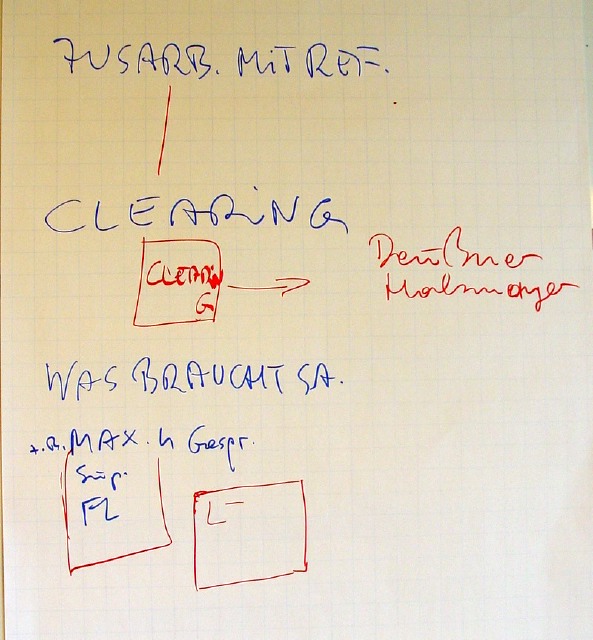 ZUSARB. MIT REF.
CLEARING
CLEARIN
G
WAS BRAUCHT SA.
z.B. MAX. 4 Gespr.
Sup.
FL
L -